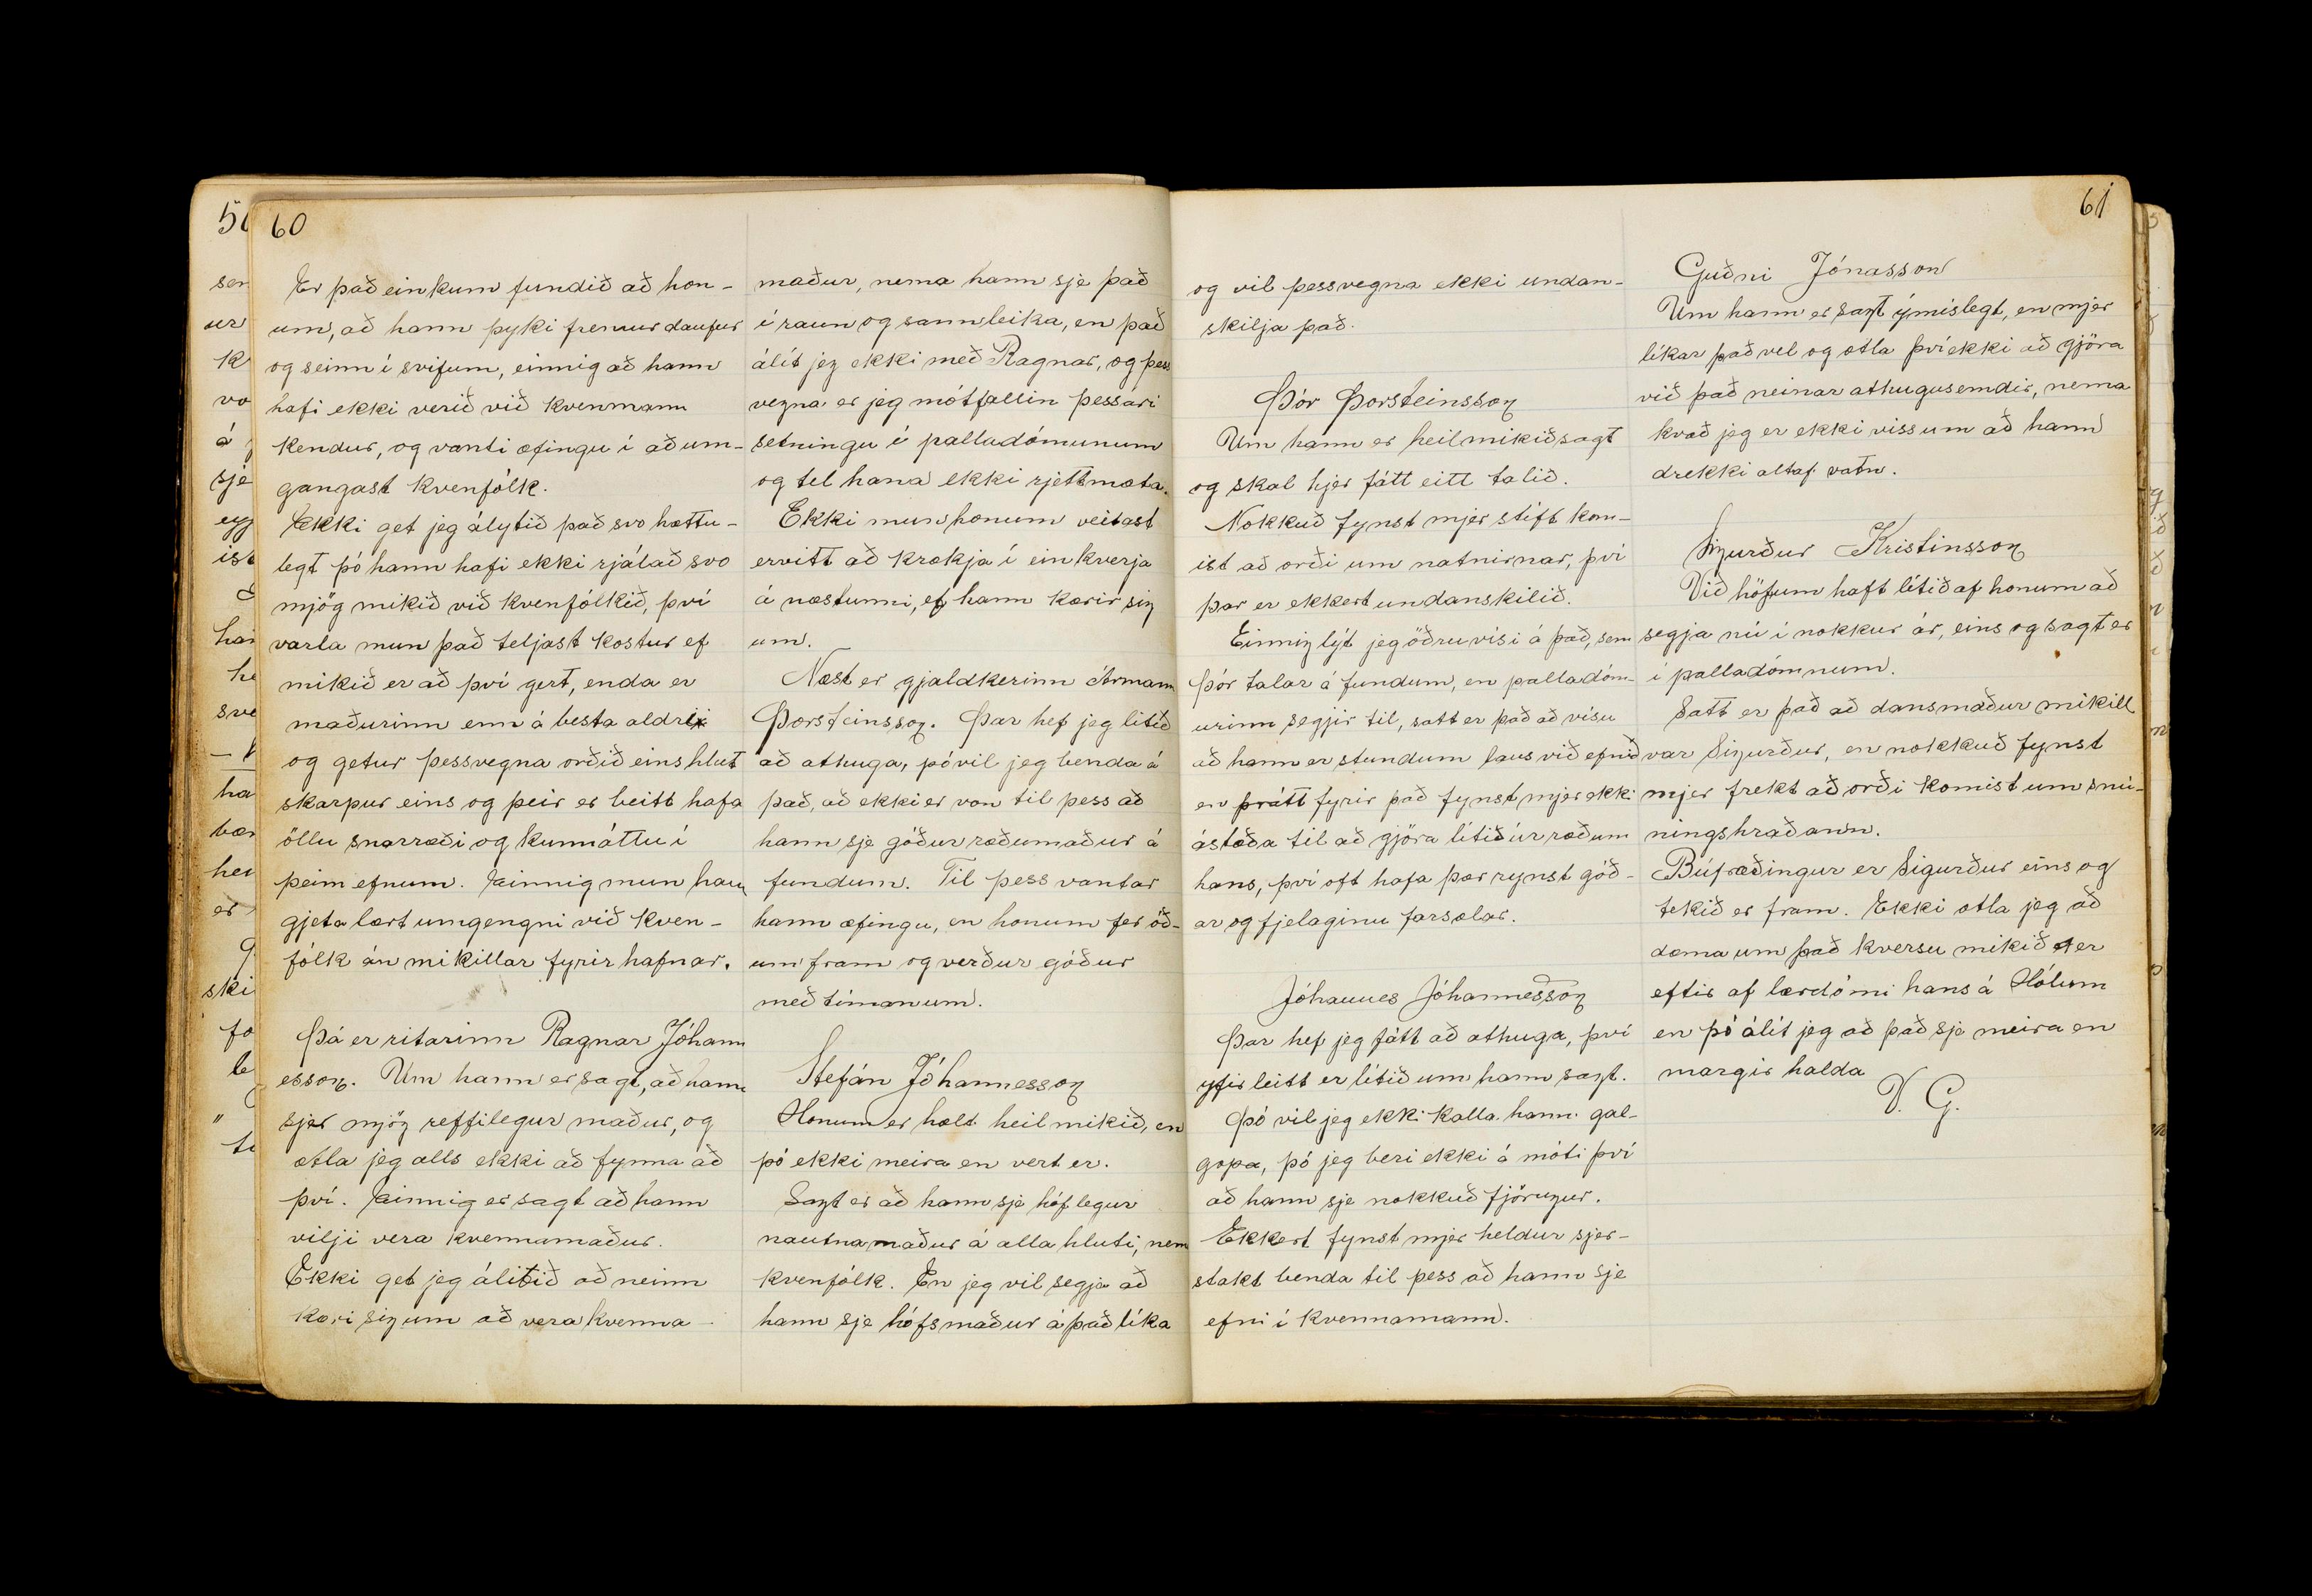 60
Er það einkum fundið að hon-
um, að hann þyki fremur daufur
og seinn í svifum, einnig að hann
hafi ekki verið við kvenmann
kendur, og vanti æfingu í að um-
gangast kvenfólk.
Ekki get jeg álytið það svo hættu-
legt þó hann hafi ekki rjálað svo
mjög mikið við kvenfólkið, því
varla mun það teljast kostur ef
mikið er að því gert, enda er
maðurinn enn á besta aldri
og getur þessvegna orðið eins hlut
skarpur eins og þeir er beitt hafa
öllu snarræði og kunnáttu í
þeim efnum. Einnig mun hann
gjeta lært umgengni við kven-
fólk án mikillar fyrirhafnar.
Þá er ritarinn Ragnar Jóhann
esson. Um hann er sagt, að hann
sjer mjög reffilegur maður, og
ætla jeg alls ekki að fynna að
því. Einnig er sagt að hann
vilji vera kvennamaður.
Ekki get jeg álitið að neinn
kæri sig um að vera kvenna-
maður, nema hann sje það
í raun og sannleika, en það
álít jeg ekki með Ragnar, og þess
vegna er jeg mótfallin þessari
setningu í palladómunum
og tel hana ekki rjettmæta.
Ekki mun honum veitast
ervitt að krækja í einhverja
á næstunni, ef hann kærir sig
um.
Næst er gjaldkerinn Ármann
Þorsteinsson. Þar hef jeg litið
að athuga, þó vil jeg benda á
það, að ekki er von til þess að
hann sje góður ræðumaður á
fundum. Til þess vantar
hann æfingu, en honum fer óð-
um fram og verður góður
með tímanum.
Stefán Jóhannesson
Honum er hælt heilmikið, en
þó ekki meira en vert er.
Sagt er að hann sje hóflegur
nautnamaður á alla hluti, nem
kvenfólk. En jeg vil segja að
hann sje hófsmaður á það líka
61
og vil þessvegna ekki undan-
skilja það.
Þór Þorsteinsson
Um hann er heilmikið sagt
og skal hjer fátt eitt talið.
Nokkuð fynst mjer stíft kom-
ist að orði um natnirnar, því
þar er ekkert undanskilið.
Einnig lýt jeg öðruvísi á það, sem
Þór talar á fundum, en palladóm-
urinn segjir til, satt er það að vísu
að hann er stundum laus við efnið
en þrátt fyrir það fynst mjer ekki
ástæða til að gjöra lítið úr ræðum
hans, því oft hafa þær rynst góð-
ar og fjelaginu farsælar.
Jóhannes Jóhannesson
Þar hef jeg fátt að athuga, því
yfirleitt er lítið um hann sagt.
Þó vil jeg ekki kalla hann gal-
gopa, þó jeg beri ekki á móti því
að hann sje nokkuð fjörugur.
Ekkert fynst mjer heldur sjer-
stakt benda til þess að hann sje
efni í kvennamann.
Guðni Jónasson
Um hann er sagt ýmislegt, en mjer
líkar það vel og ætla því ekki að gjöra
við það neinar athugusemdir, nema
hvað jeg er ekki viss um að hann
drekki altaf vatn.
Sigurður Kristinsson
Við höfum haft lítið af honum að
segja nú í nokkur ár, eins og sagt er
í palladómnum.
Satt er það að dansmaður mikill
var Sigurður, en nokkuð fynst
mjer frekt að orði komist um snú-
ningshraðann.
Búfræðingur er Sigurður eins og
tekið er fram. Ekki ætla jeg að
dæma um það hversu mikið er
eftir af lærdómi hans á Hólum
en þó álít jeg að það sje meira en
margir halda
V. G.